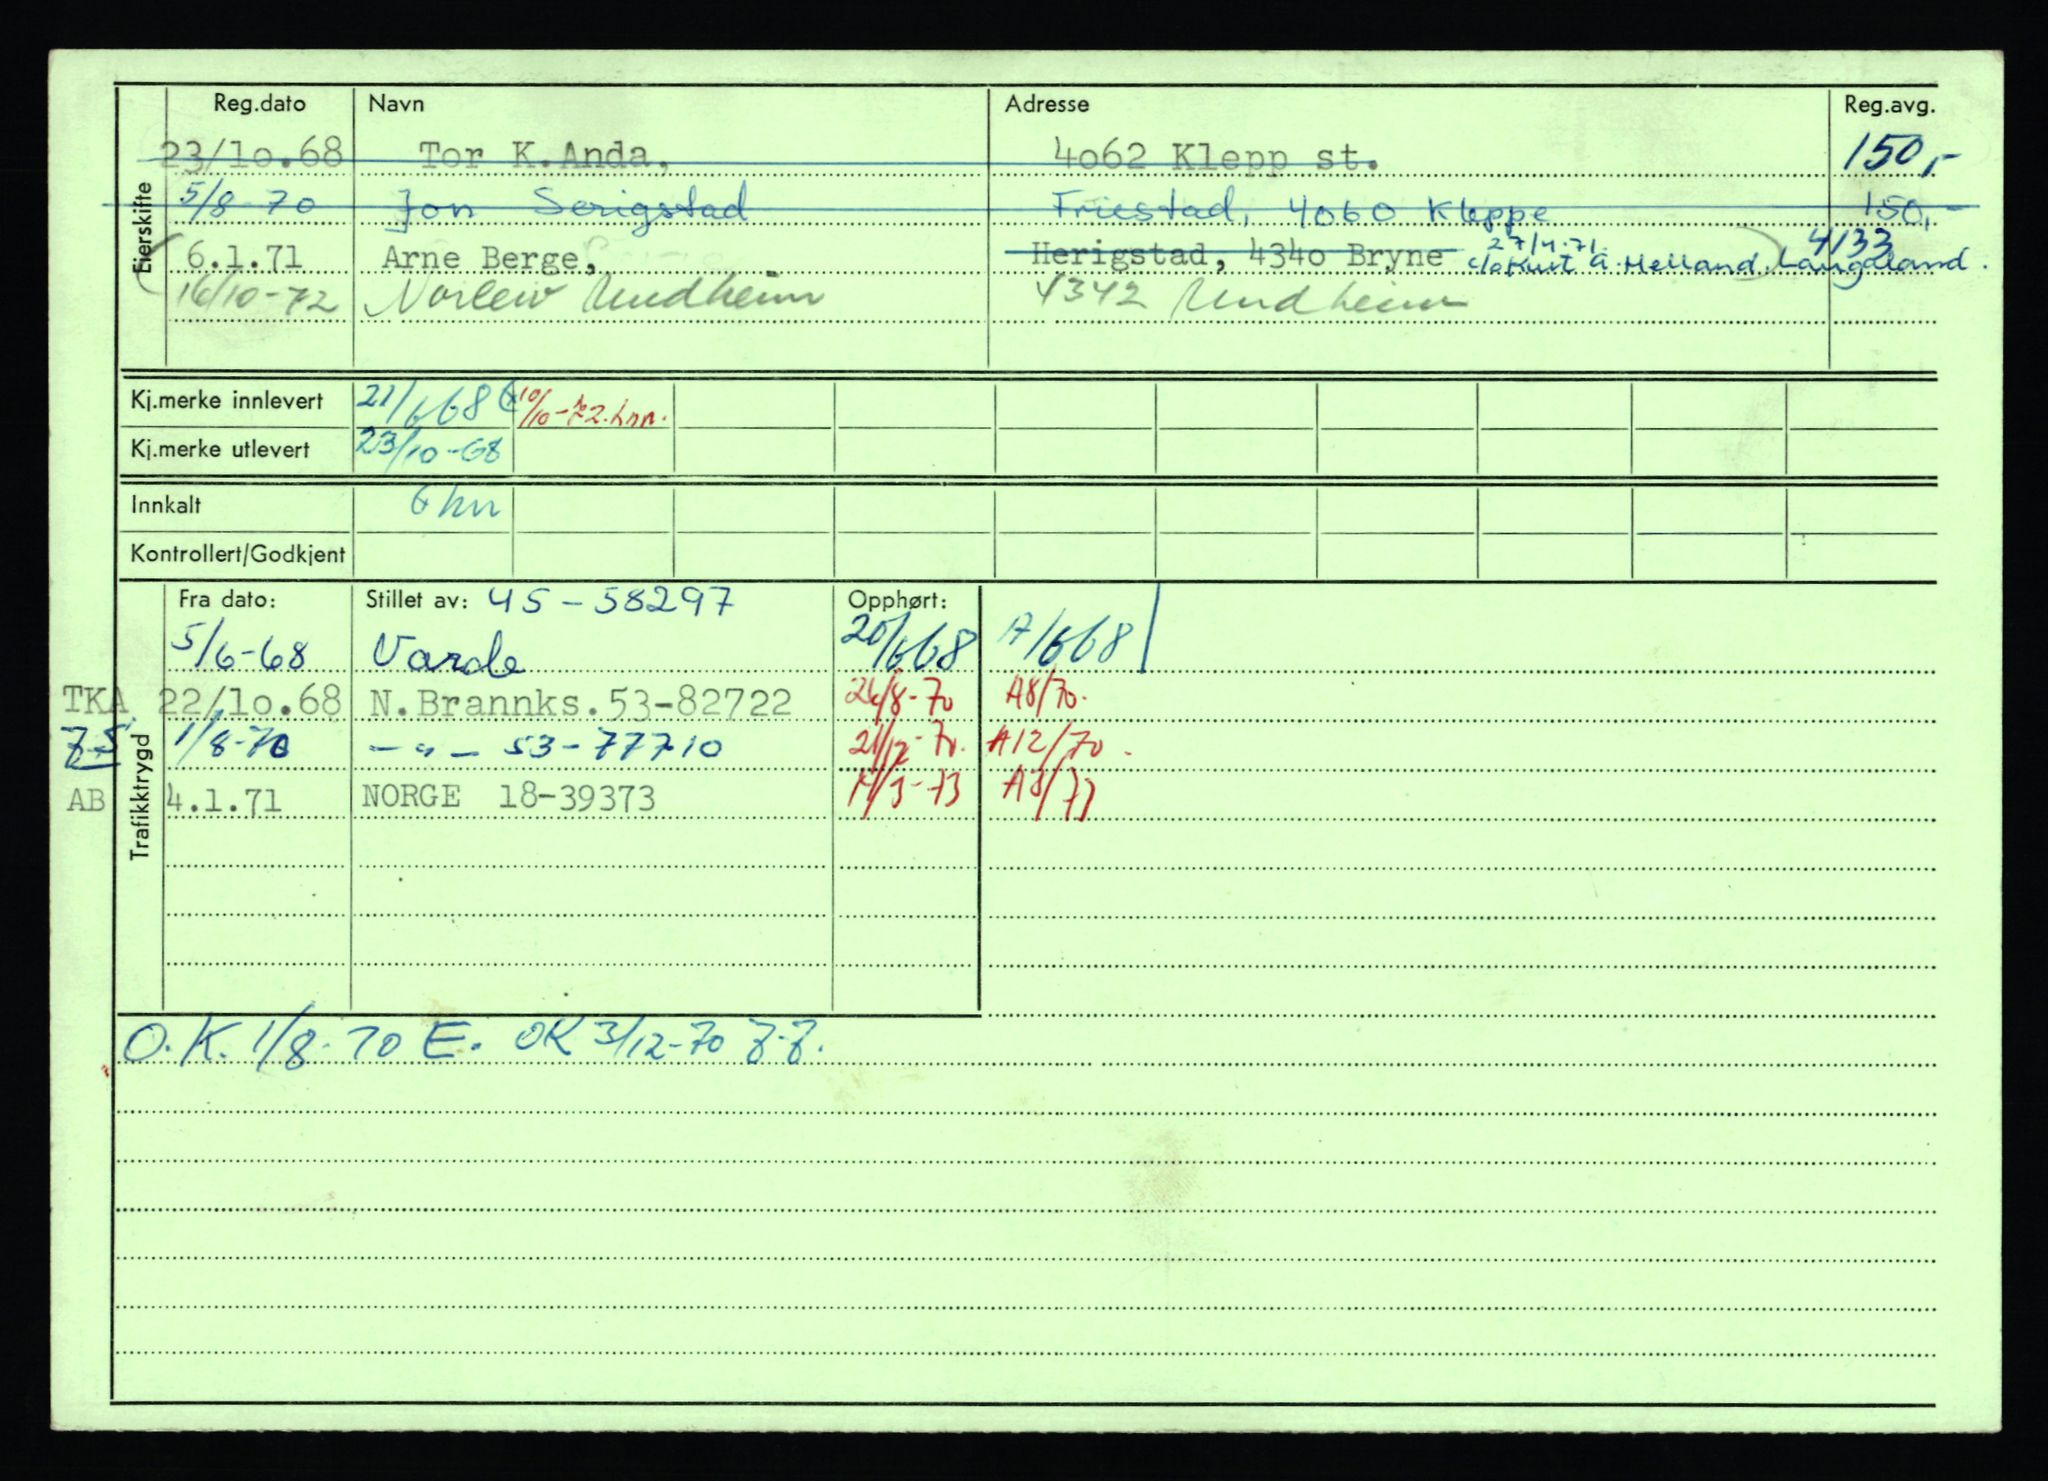 Reg.dato Navn Adresse Reg.avg.
Eierskifte
23/10.68 Tor K.Anda, 4062 Klepp st. 150,-
5/8-70 Jon Serigstad Friestad, 4060 Kleppe 150,-
6.1.71 Arne Berge, Herigstad, 4340 Bryne 27/4.71 c/o Knut A. Helland. Langåland. 4133
16/10-72 Undheim 4342 Undheim
Kj.merke innlevert 21/6 68 10/10-72.
Kj.merke utlevert 23/10-68
Innkalt
Kontrollert/Godkjent
Trafikktrygd
Fra dato: Stillet av: 45-58297 Opphørt:
5/6-68 Varde 20/6 68 17/6 68
TKA 22/10.68 N.Brannks.53-82722 26/8-70 A8/70.
1/8-70 -"- 53-77710 21/12-70. A12/70.
AB 4.1.71 NORGE 18-39373 A3/73
O.K. 1/8-70 E. OK 3/12-70